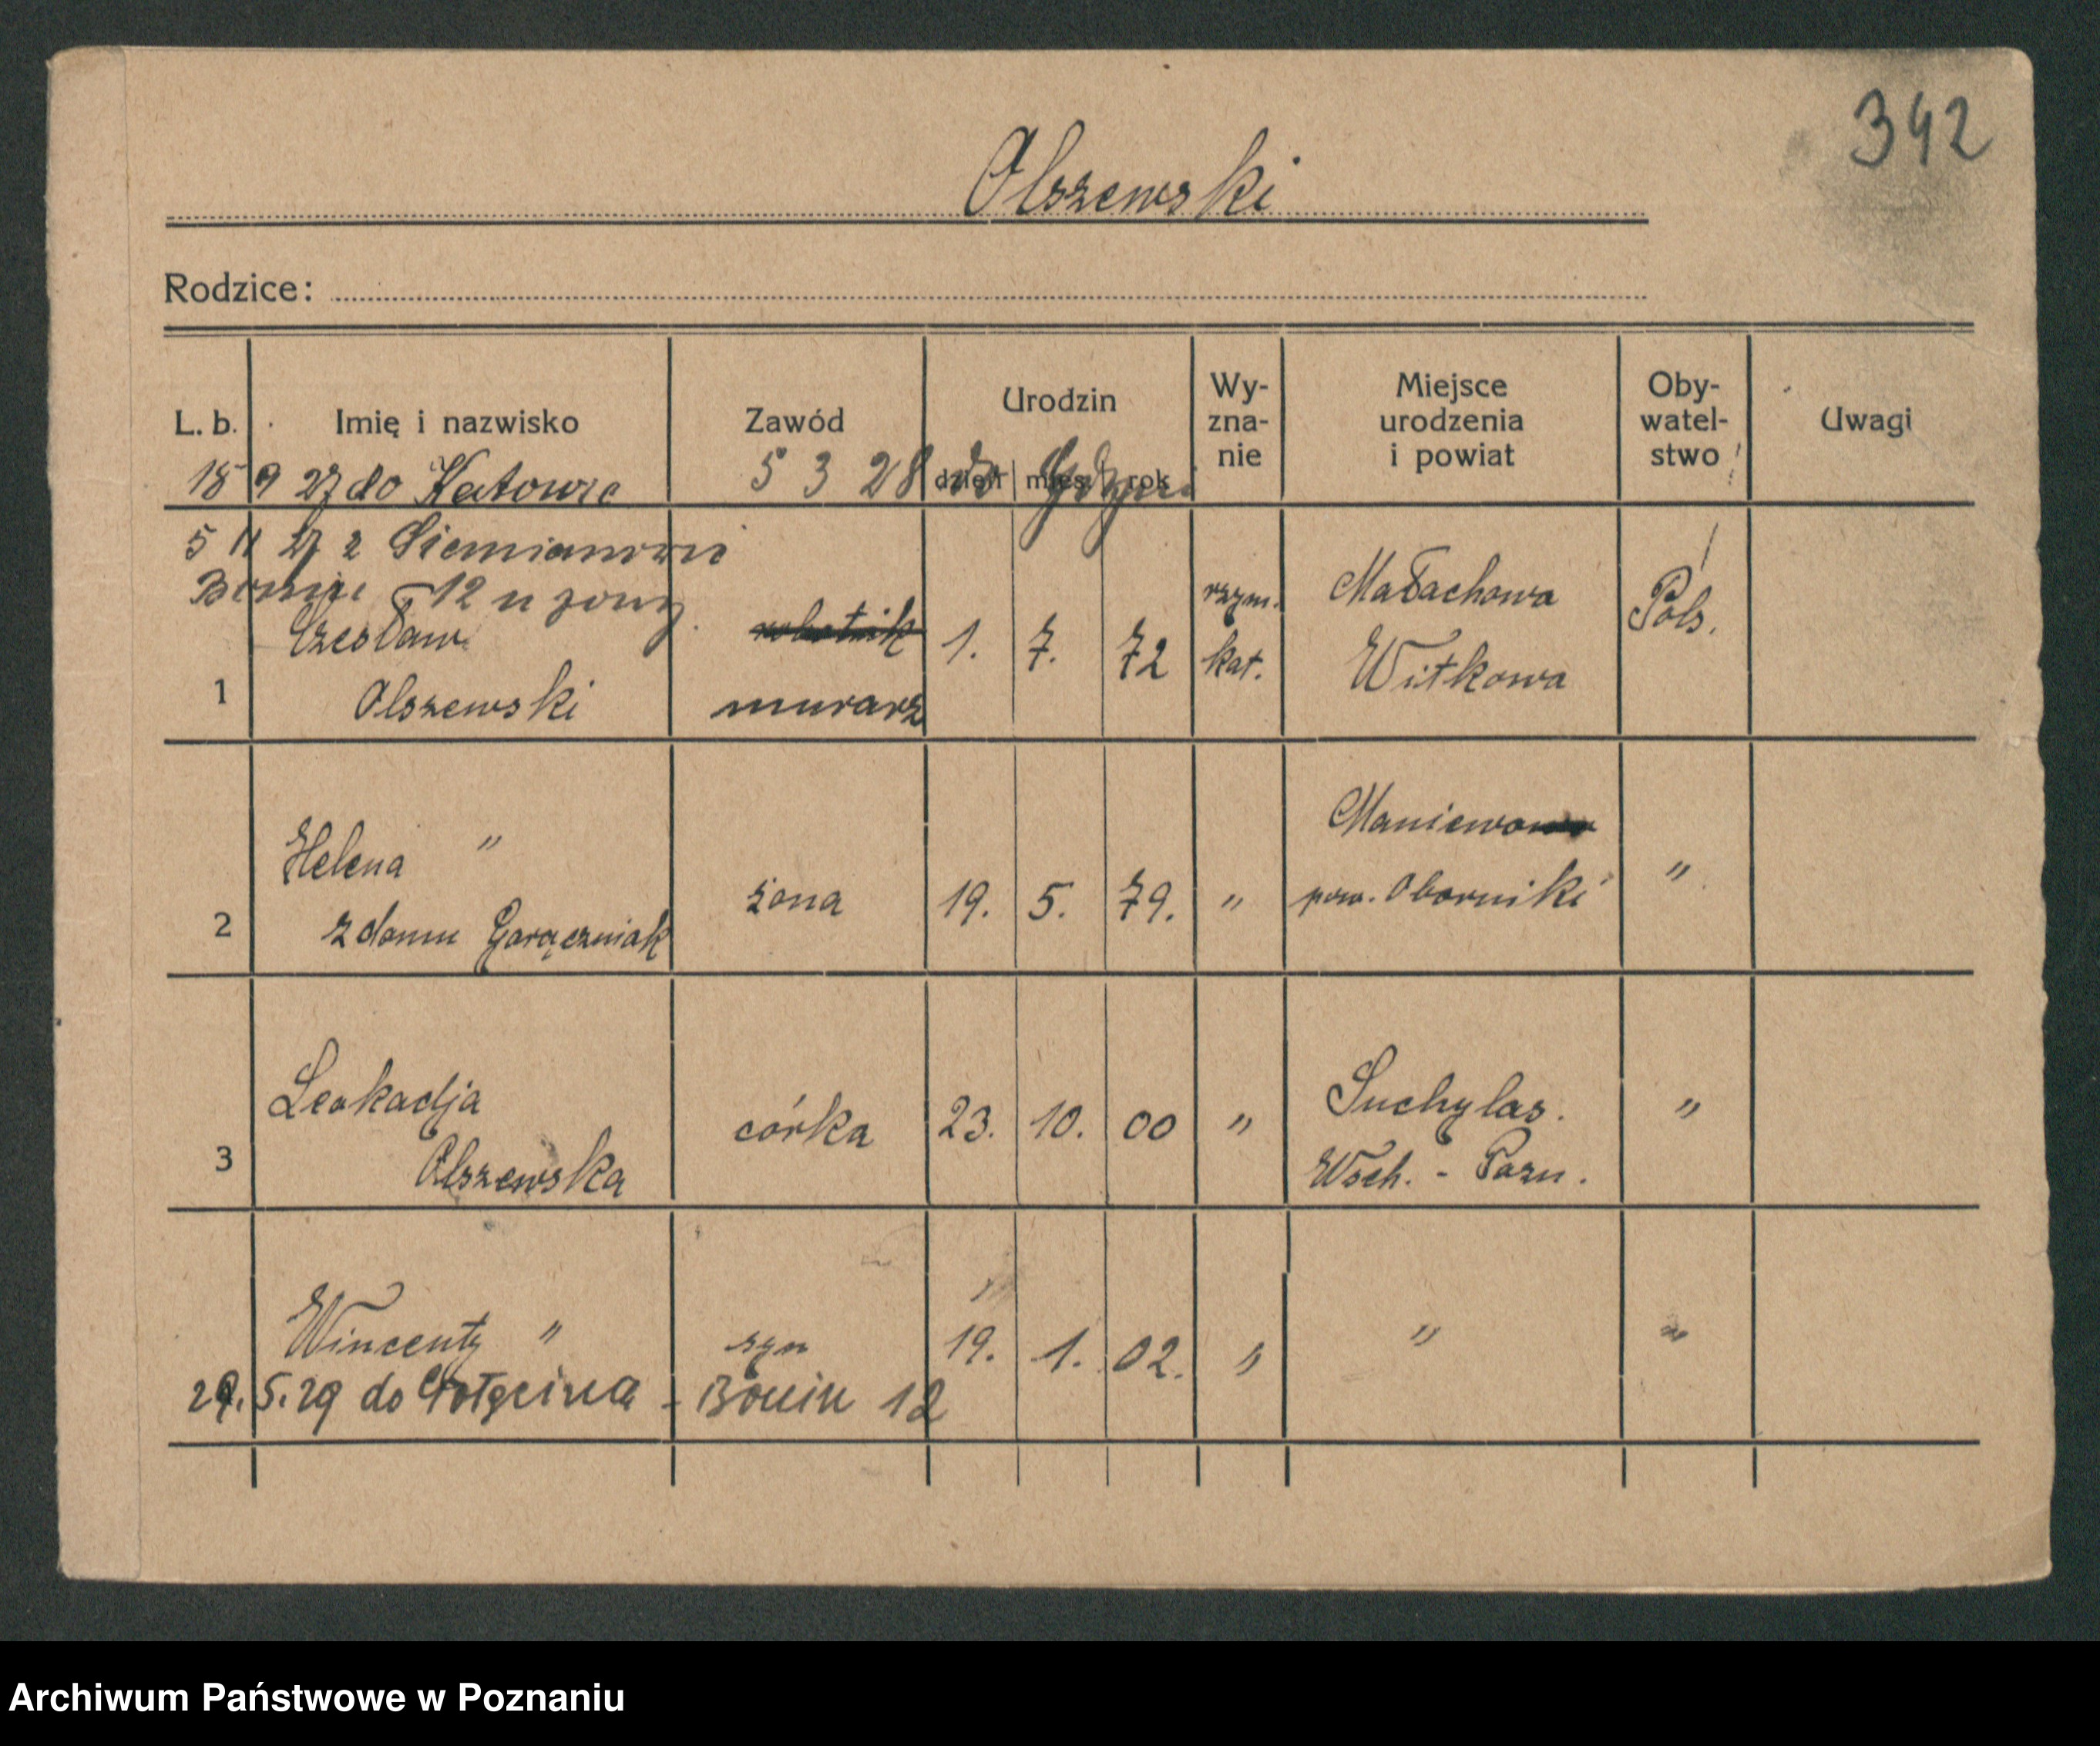 342
Olszewski
Rodzice:
L. b. Imię i nazwisko Zawód Urodzin dzień mies. rok Wy-zna-nie Miejsce urodzenia i powiat Oby-watel-stwo Uwagi
18 9 27 do Katowic 5 3 28 do
5 11 27 z Siemianowic
12 u żony
1 Czesław Olszewski robotnik murarz 1. 7. 72 rzym. kat. Małachowa Witkowa Pols.
2 Helena " z domu Garączniak żona 19. 5. 79. " Maniewo pow. Oborniki "
3 Leokadja Olszewska córka 23. 10. 00 " Suchylas. Wsch. - Pozn. "
Wincenty " syn 19. 1. 02. " " "
29. 5. 29 do Gołęcina - Bonin 12
Archiwum Państwowe w Poznaniu